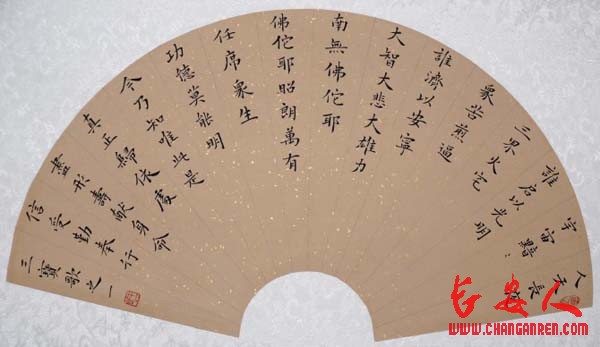 人天長
宇宙黯
誰启以光明
三界火宅
衆苦煎逼
誰濟以安寧
大智大悲大雄力
南無佛佗耶
佛佗耶昭朗萬有
任席衆生
功德莫能明
今乃知唯此是
真正歸依處
盡形壽獻身命
信受勤奉行
三寶歌之一
长安人
WWW.CHANGANREN.COM